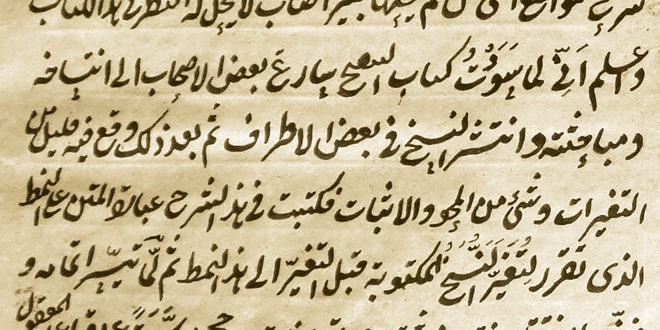 لا يحل له النظر في هذا الكتاب
واعلم اني لما سودت كتاب التنقيح سارع بعض الاصحاب الى انتساخه
ومباحثته وانتشر النسخ في بعض الاطراف ثم بعد ذلك وقع فيه قليل من
التغيرات وشئ من المحو والاثبات فكتبت في هذا الشرح عبارة المتن على النمط
الذى تقرر لتغير النسخ المكتوبة قبل التغير الى هذا النمط ثم لما تيسر اتمامه و